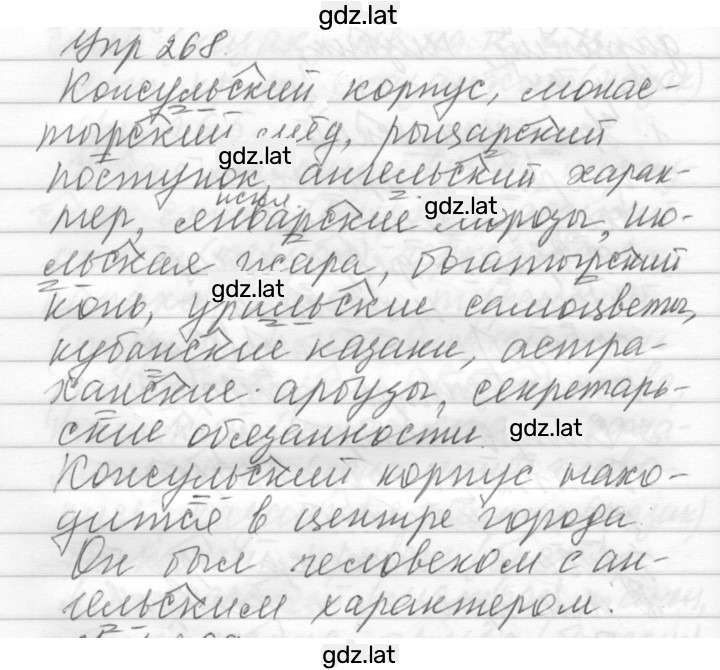 gdz.lat
Упр 268.
Консульский корпус, монас-
тырский мёд, рыцарский
gdz.lat
поступок, ангельский харак-
искл.
тер, январские морозы, ию-
gdz.lat
льская жара, богатырский
gdz.lat
конь, уральские самоцветы,
кубанские казаки, астра-
ханские арбузы, секретарь-
ские обязанности
gdz.lat
Консульский корпус нахо-
дится в центре города.
Он был человеком с ан-
гельским характером.
gdz.lat